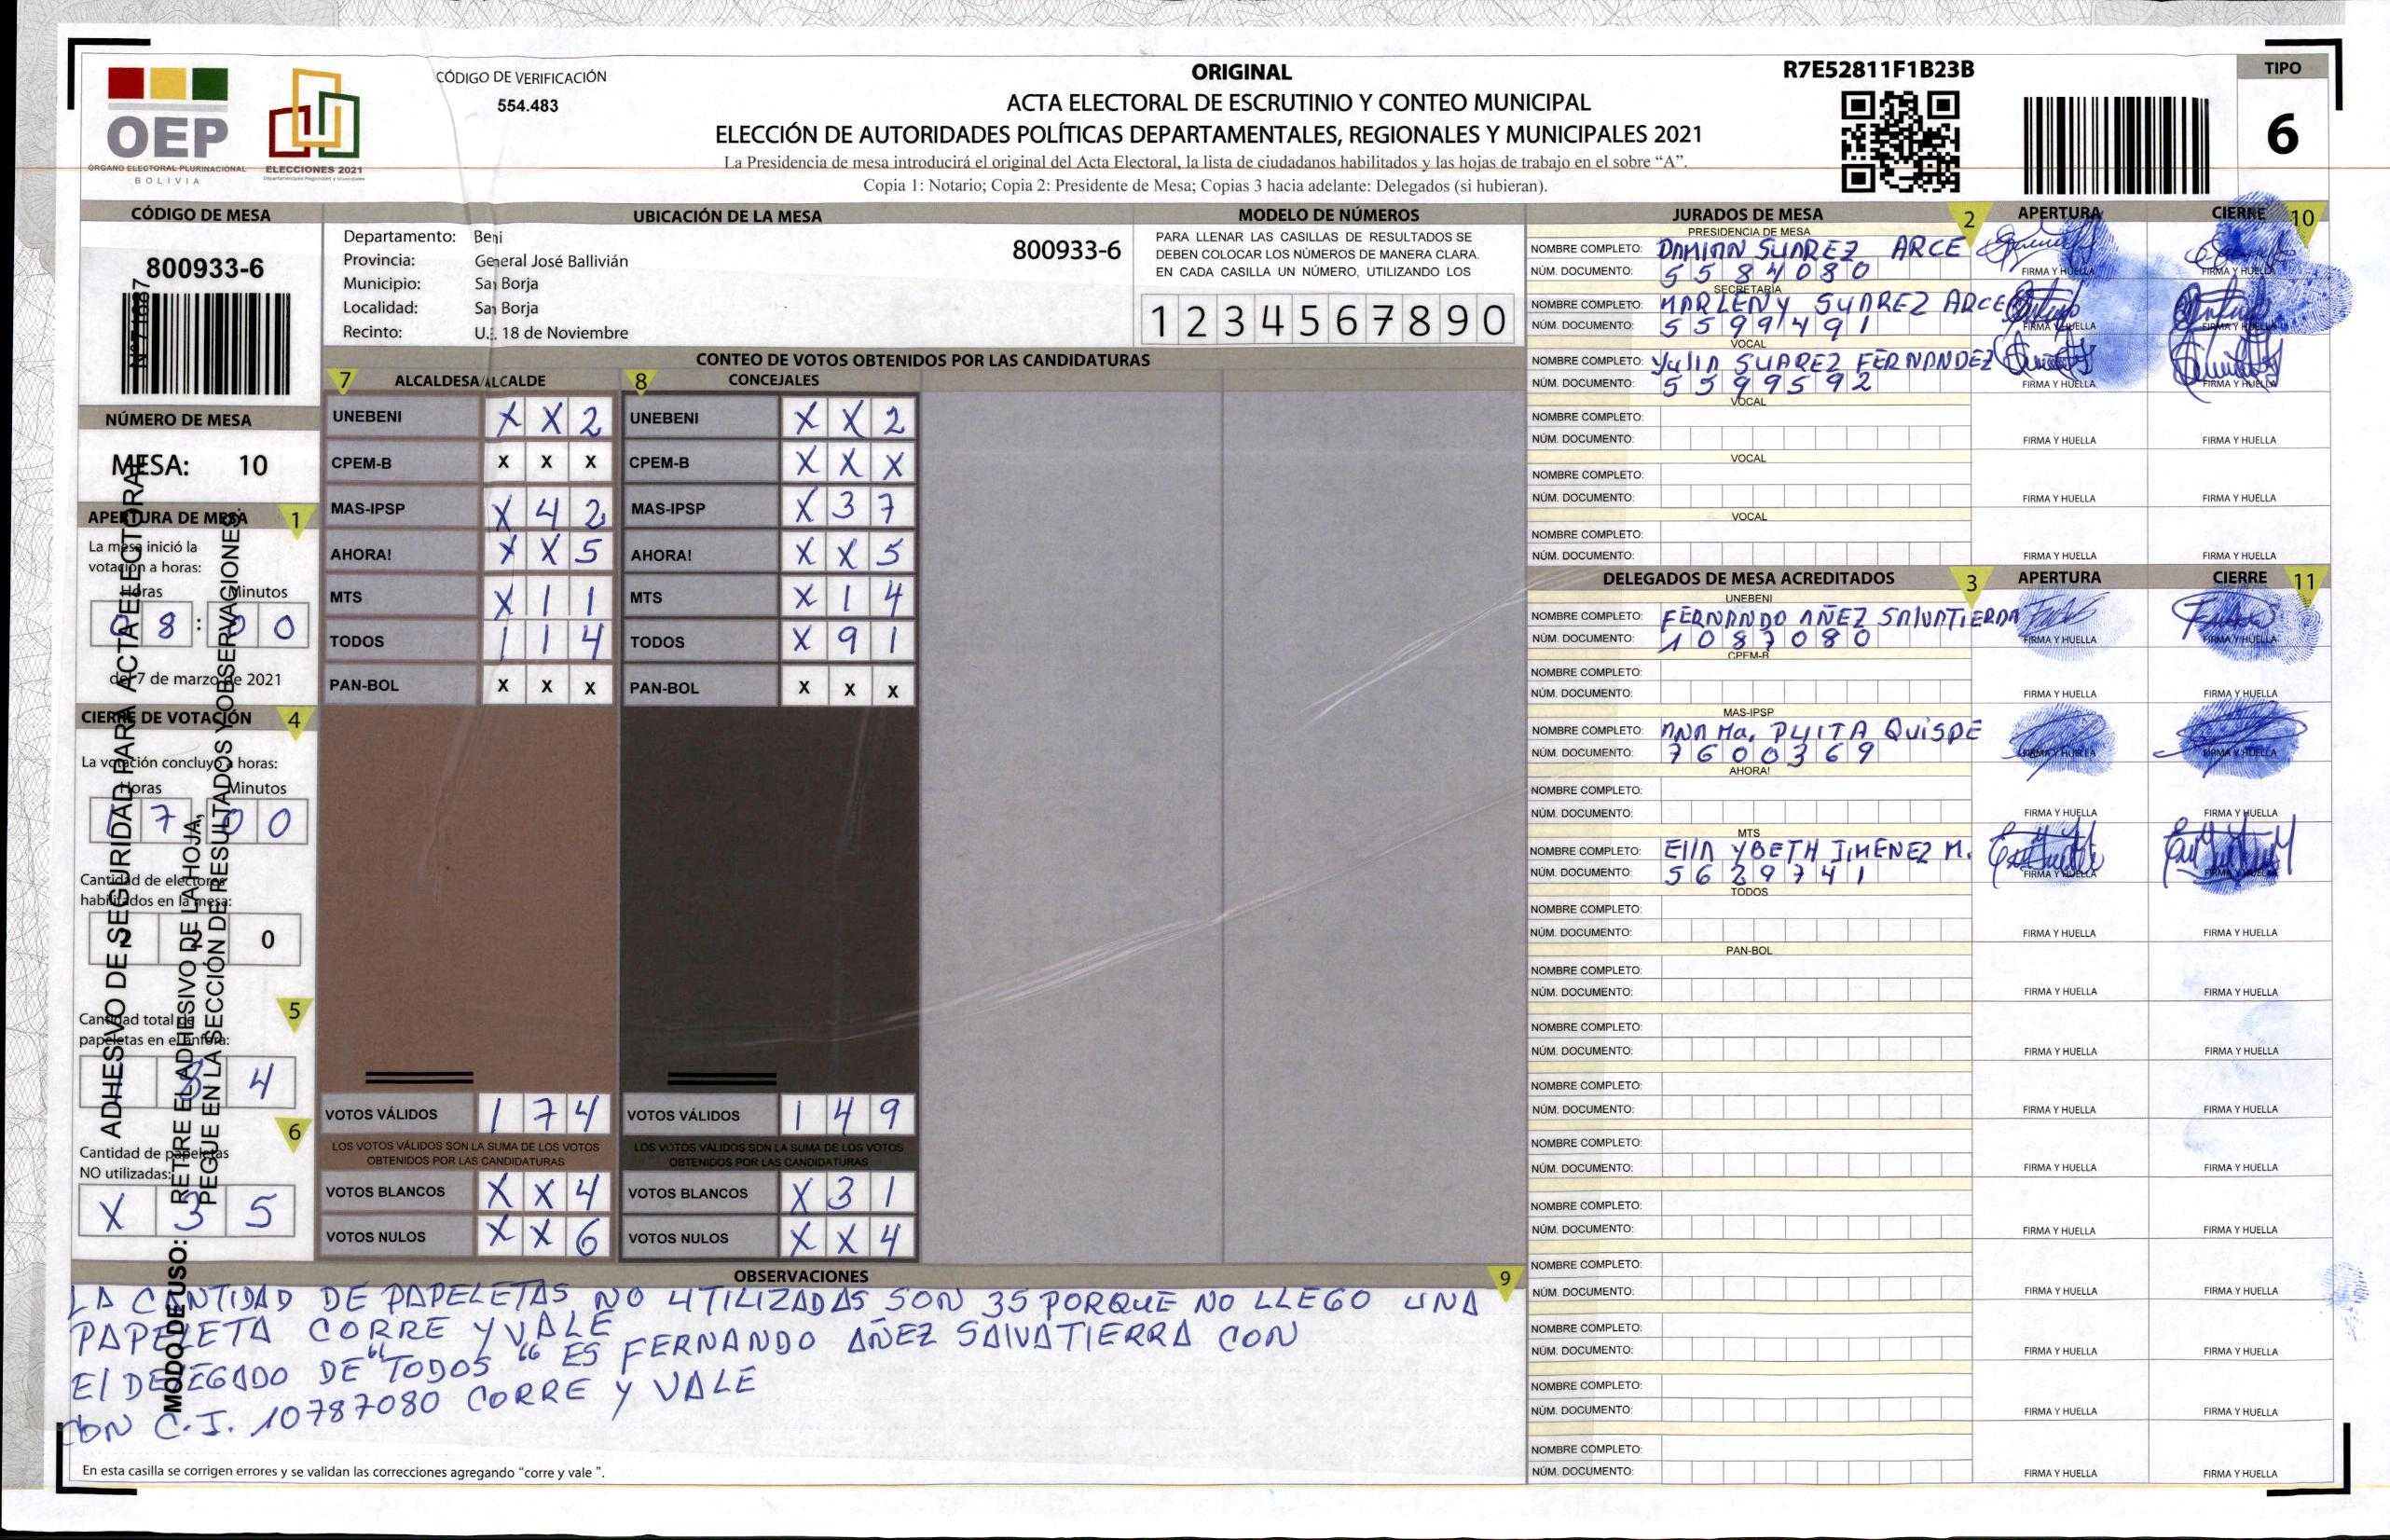 OEP
ÓRGANO ELECTORAL PLURINACIONAL
BOLIVIA
ELECCIONES 2021
CÓDIGO DE VERIFICACIÓN
554.483
ORIGINAL
ACTA ELECTORAL DE ESCRUTINIO Y CONTEO MUNICIPAL
ELECCIÓN DE AUTORIDADES POLÍTICAS DEPARTAMENTALES, REGIONALES Y MUNICIPALES 2021
La Presidencia de mesa introducirá el original del Acta Electoral, la lista de ciudadanos habilitados y las hojas de trabajo en el sobre “A”.
Copia 1: Notario; Copia 2: Presidente de Mesa; Copias 3 hacia adelante: Delegados (si hubieran).
R7E52811F1B23B
TIPO
6
CÓDIGO DE MESA
800933-6
NÚMERO DE MESA
MESA: 10
APERTURA DE MESA 1
La mesa inició la
votación a horas:
Horas Minutos
8 : 0
7 de marzo de 2021
CIERRE DE VOTACIÓN 4
La votación concluyó a horas:
Horas Minutos
7 0
Cantidad de electores
habilitados en la mesa:
0
5
Cantidad total de
papeletas en el ánfora:
8 4
6
Cantidad de papeletas
NO utilizadas:
X 3 5
ADHESIVO DE SEGURIDAD PARA ACTA ELECTORAL
MODO DE USO: RETIRE EL ADHESIVO DE LA HOJA,
PEGUE EN LA SECCIÓN DE RESULTADOS Y OBSERVACIONES
UBICACIÓN DE LA MESA
Departamento: Beni
Provincia: General José Ballivián
Municipio: San Borja
Localidad: San Borja
Recinto: U.. 18 de Noviembre
800933-6
MODELO DE NÚMEROS
PARA LLENAR LAS CASILLAS DE RESULTADOS SE
DEBEN COLOCAR LOS NÚMEROS DE MANERA CLARA.
EN CADA CASILLA UN NÚMERO, UTILIZANDO LOS
1 2 3 4 5 6 7 8 9 0
CONTEO DE VOTOS OBTENIDOS POR LAS CANDIDATURAS
7 ALCALDESA/ALCALDE 8 CONCEJALES
UNEBENI X X 2 UNEBENI X X 2
CPEM-B X X X CPEM-B X X X
MAS-IPSP X 4 2 MAS-IPSP X 3 7
AHORA! X X 5 AHORA! X X 5
MTS X 1 1 MTS X 1 4
TODOS 1 1 4 TODOS X 9 1
PAN-BOL X X X PAN-BOL X X X
VOTOS VÁLIDOS 1 7 4 VOTOS VÁLIDOS 1 4 9
LOS VOTOS VÁLIDOS SON LA SUMA DE LOS VOTOS LOS VOTOS VÁLIDOS SON LA SUMA DE LOS VOTOS
OBTENIDOS POR LAS CANDIDATURAS OBTENIDOS POR LAS CANDIDATURAS
VOTOS BLANCOS X X 4 VOTOS BLANCOS X 3 1
VOTOS NULOS X X 6 VOTOS NULOS X X 4
OBSERVACIONES 9
LA CANTIDAD DE PAPELETAS NO UTILIZADAS SON 35 PORQUE NO LLEGO UNA
PAPELETA CORRE Y VALE
El DELEGADO DE "TODOS" ES FERNANDO AÑEZ SALVATIERRA CON
CON C.I. 10787080 CORRE Y VALE
En esta casilla se corrigen errores y se validan las correcciones agregando “corre y vale ”.
JURADOS DE MESA 2 APERTURA CIERRE 10
PRESIDENCIA DE MESA
NOMBRE COMPLETO: DAMIAN SUAREZ ARCE
NÚM. DOCUMENTO: 5584080 FIRMA Y HUELLA FIRMA Y HUELLA
SECRETARÍA
NOMBRE COMPLETO: MARLENY SUAREZ ARCE
NÚM. DOCUMENTO: 5599491 FIRMA Y HUELLA FIRMA Y HUELLA
VOCAL
NOMBRE COMPLETO: YULIA SUAREZ FERNANDEZ
NÚM. DOCUMENTO: 5599592 FIRMA Y HUELLA FIRMA Y HUELLA
VOCAL
NOMBRE COMPLETO:
NÚM. DOCUMENTO: FIRMA Y HUELLA FIRMA Y HUELLA
VOCAL
NOMBRE COMPLETO:
NÚM. DOCUMENTO: FIRMA Y HUELLA FIRMA Y HUELLA
VOCAL
NOMBRE COMPLETO:
NÚM. DOCUMENTO: FIRMA Y HUELLA FIRMA Y HUELLA
DELEGADOS DE MESA ACREDITADOS 3 APERTURA CIERRE 11
UNEBENI
NOMBRE COMPLETO: FERNANDO AÑEZ SALVATIERRA
NÚM. DOCUMENTO: 1087080 FIRMA Y HUELLA FIRMA Y HUELLA
CPEM-B
NOMBRE COMPLETO:
NÚM. DOCUMENTO: FIRMA Y HUELLA FIRMA Y HUELLA
MAS-IPSP
NOMBRE COMPLETO: ANA Ma. PUITA QUISPE
NÚM. DOCUMENTO: 7600369 FIRMA Y HUELLA FIRMA Y HUELLA
AHORA!
NOMBRE COMPLETO:
NÚM. DOCUMENTO: FIRMA Y HUELLA FIRMA Y HUELLA
MTS
NOMBRE COMPLETO: ElIA YBETH JIMENEZ M.
NÚM. DOCUMENTO: 5629741 FIRMA Y HUELLA FIRMA Y HUELLA
TODOS
NOMBRE COMPLETO:
NÚM. DOCUMENTO: FIRMA Y HUELLA FIRMA Y HUELLA
PAN-BOL
NOMBRE COMPLETO:
NÚM. DOCUMENTO: FIRMA Y HUELLA FIRMA Y HUELLA
NOMBRE COMPLETO:
NÚM. DOCUMENTO: FIRMA Y HUELLA FIRMA Y HUELLA
NOMBRE COMPLETO:
NÚM. DOCUMENTO: FIRMA Y HUELLA FIRMA Y HUELLA
NOMBRE COMPLETO:
NÚM. DOCUMENTO: FIRMA Y HUELLA FIRMA Y HUELLA
NOMBRE COMPLETO:
NÚM. DOCUMENTO: FIRMA Y HUELLA FIRMA Y HUELLA
NOMBRE COMPLETO:
NÚM. DOCUMENTO: FIRMA Y HUELLA FIRMA Y HUELLA
NOMBRE COMPLETO:
NÚM. DOCUMENTO: FIRMA Y HUELLA FIRMA Y HUELLA
NOMBRE COMPLETO:
NÚM. DOCUMENTO: FIRMA Y HUELLA FIRMA Y HUELLA
NOMBRE COMPLETO:
NÚM. DOCUMENTO: FIRMA Y HUELLA FIRMA Y HUELLA